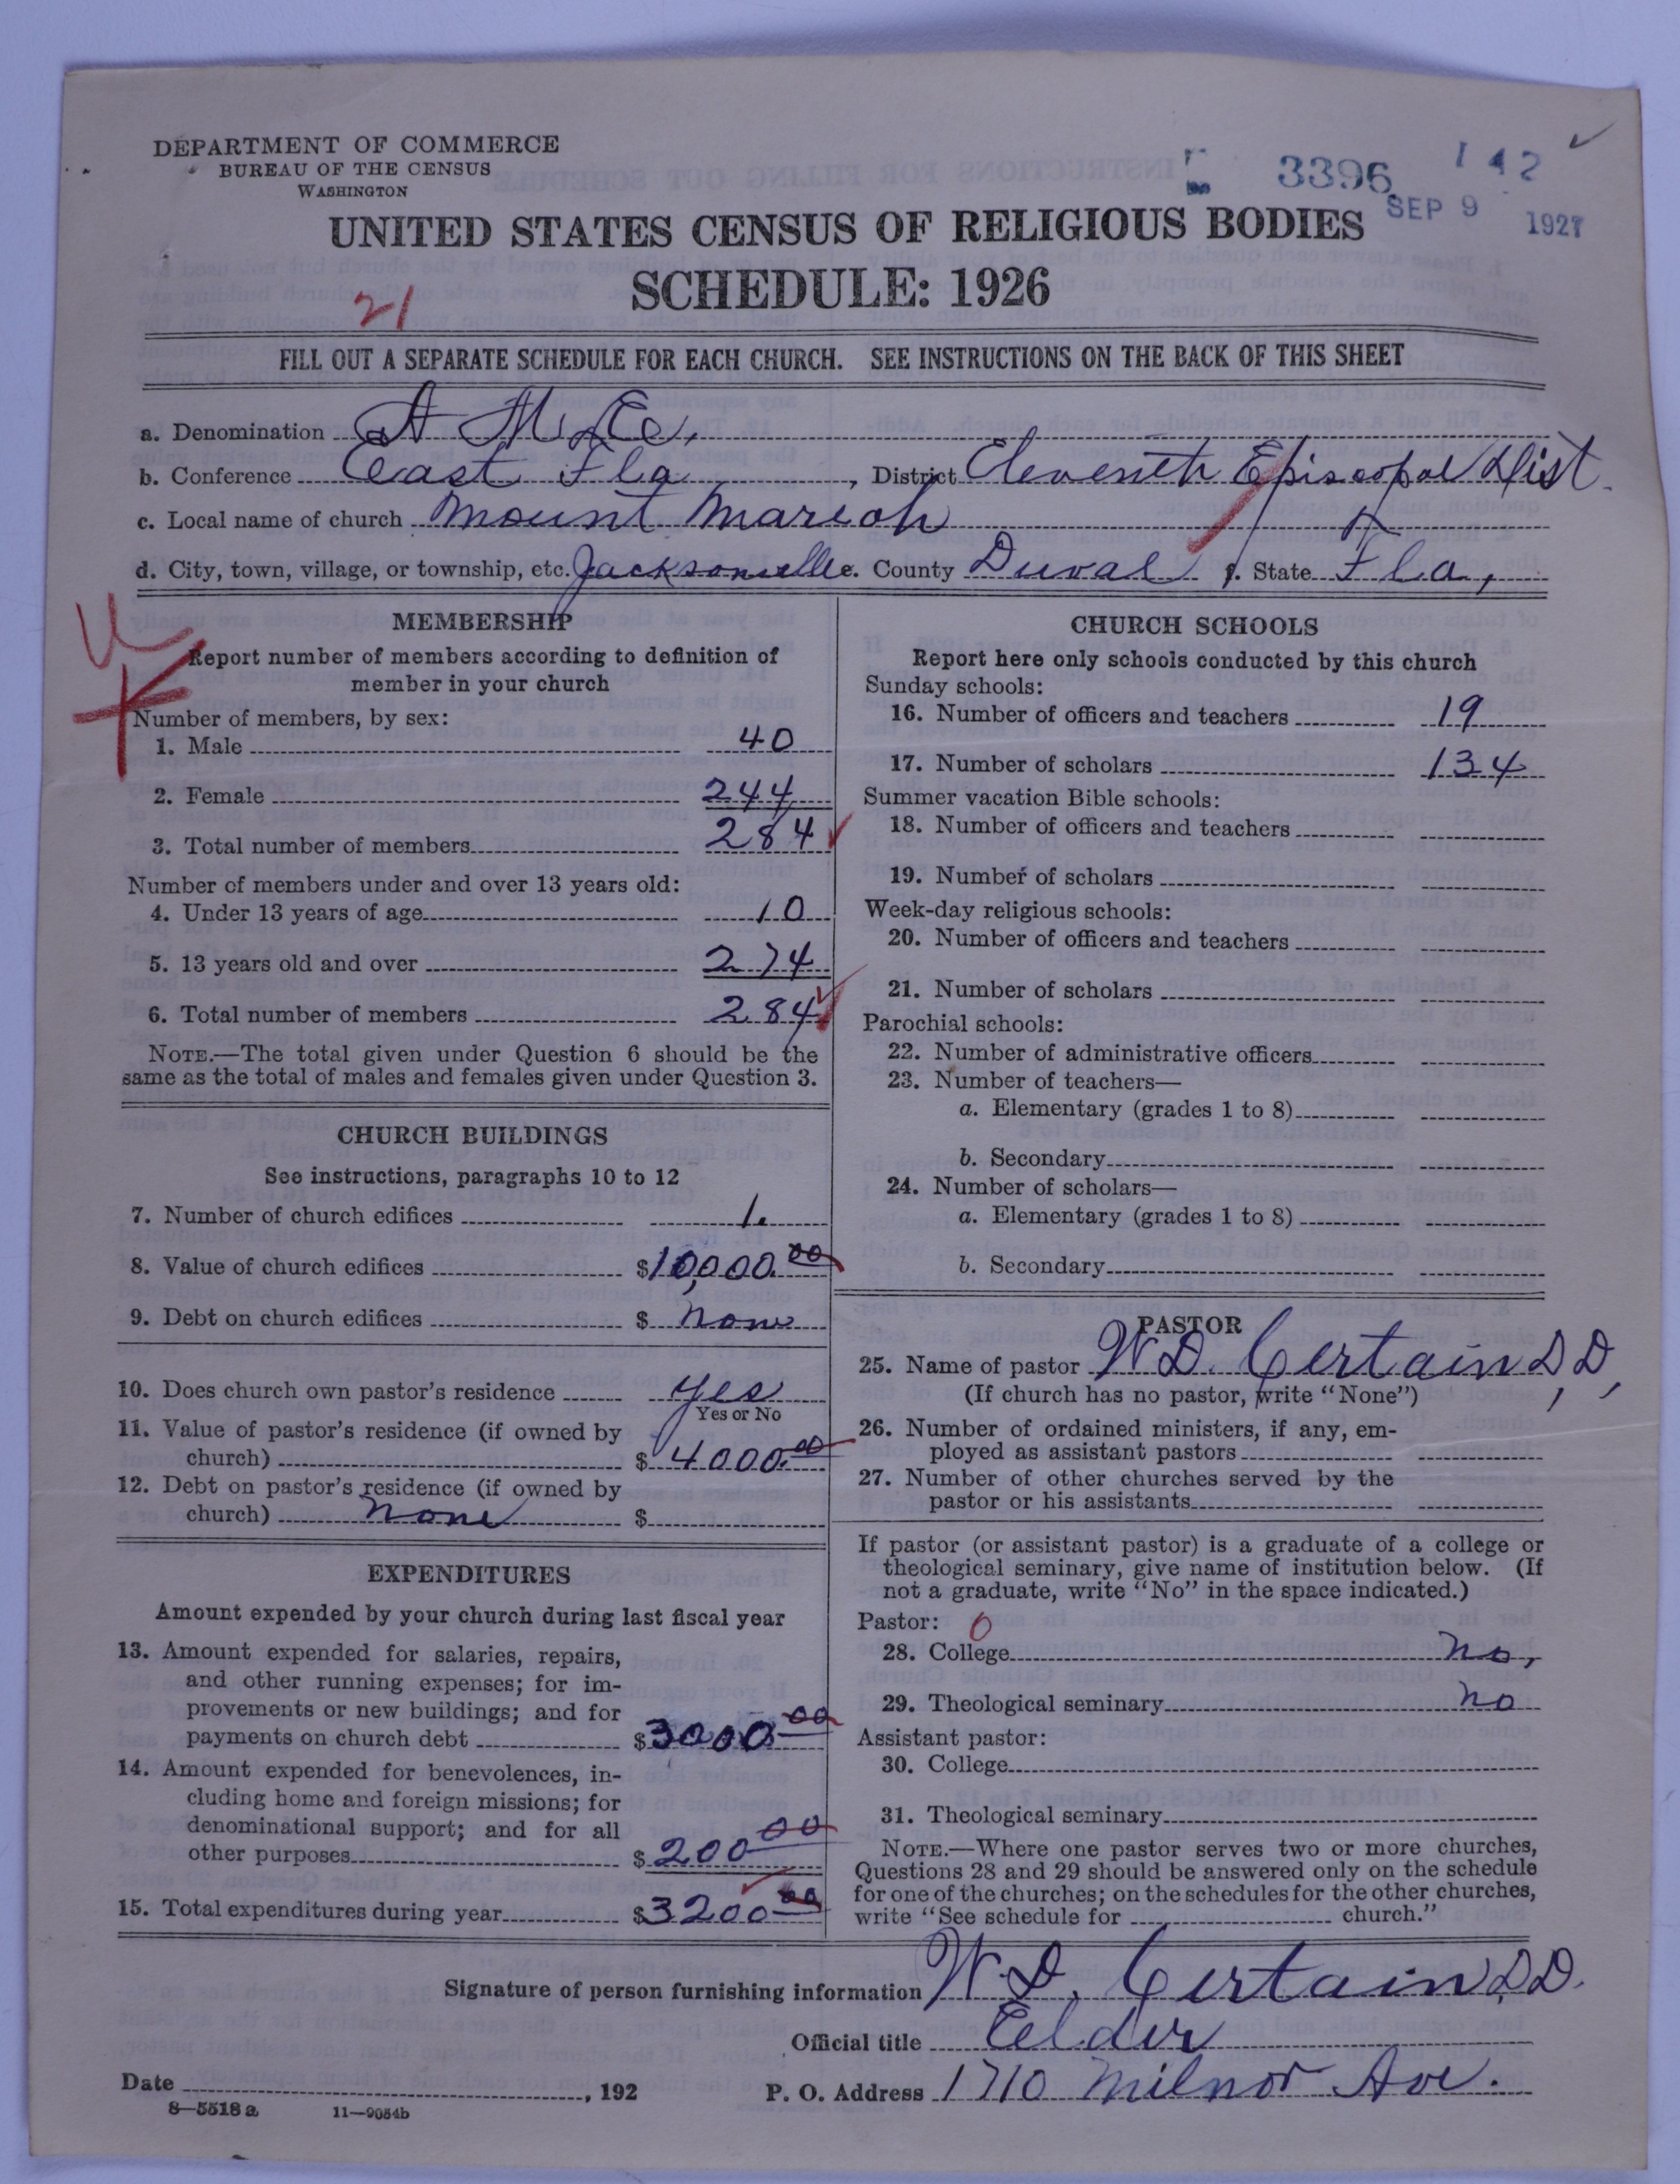 DEPARTMENT OF COMMERCE
BUREAU OF THE CENSUS
WASHINGTON
3396 142
SEP 9 1927
UNITED STATES CENSUS OF RELIGIOUS BODIES
SCHEDULE: 1926
21
FILL OUT A SEPARATE SCHEDULE FOR EACH CHURCH. SEE INSTRUCTIONS ON THE BACK OF THIS SHEET
a. Denomination A. M. E.
b. Conference East Fla, District Eleventh Episcopal Dist.
c. Local name of church Mount Marieh
d. City, town, village, or township, etc. Jacksonville e. County Duval f. State Fla,
MEMBERSHIP
Report number of members according to definition of
member in your church
Number of members, by sex:
1. Male 40
2. Female 244
3. Total number of members 284
Number of members under and over 13 years old:
4. Under 13 years of age 10
5. 13 years old and over 274
6. Total number of members 284
NOTE.—The total given under Question 6 should be the
same as the total of males and females given under Question 3.
CHURCH BUILDINGS
See instructions, paragraphs 10 to 12
7. Number of church edifices 1.
8. Value of church edifices $10,000.00
9. Debt on church edifices $ none
10. Does church own pastor's residence yes
Yes or No
11. Value of pastor's residence (if owned by
church) $ 4000.00
12. Debt on pastor's residence (if owned by
church) none $
EXPENDITURES
Amount expended by your church during last fiscal year
13. Amount expended for salaries, repairs,
and other running expenses; for im-
provements or new buildings; and for
payments on church debt $3000 00
14. Amount expended for benevolences, in-
cluding home and foreign missions; for
denominational support; and for all
other purposes $200 00
15. Total expenditures during year $3200 00
CHURCH SCHOOLS
Report here only schools conducted by this church
Sunday schools:
16. Number of officers and teachers 19
17. Number of scholars 134
Summer vacation Bible schools:
18. Number of officers and teachers
19. Number of scholars
Week-day religious schools:
20. Number of officers and teachers
21. Number of scholars
Parochial schools:
22. Number of administrative officers
23. Number of teachers—
a. Elementary (grades 1 to 8)
b. Secondary
24. Number of scholars—
a. Elementary (grades 1 to 8)
b. Secondary
PASTOR
25. Name of pastor W. D. Certain D, D,
(If church has no pastor, write "None")
26. Number of ordained ministers, if any, em-
ployed as assistant pastors
27. Number of other churches served by the
pastor or his assistants
If pastor (or assistant pastor) is a graduate of a college or
theological seminary, give name of institution below. (If
not a graduate, write "No" in the space indicated.)
Pastor: 0
28. College no,
29. Theological seminary no
Assistant pastor:
30. College
31. Theological seminary
NOTE.—Where one pastor serves two or more churches,
Questions 28 and 29 should be answered only on the schedule
for one of the churches; on the schedules for the other churches,
write "See schedule for church."
Signature of person furnishing information W. D. Certain D.D.
Official title Eelder
Date , 192 P. O. Address 1710 Milnor Ave.
8—5518 a 11—9054b